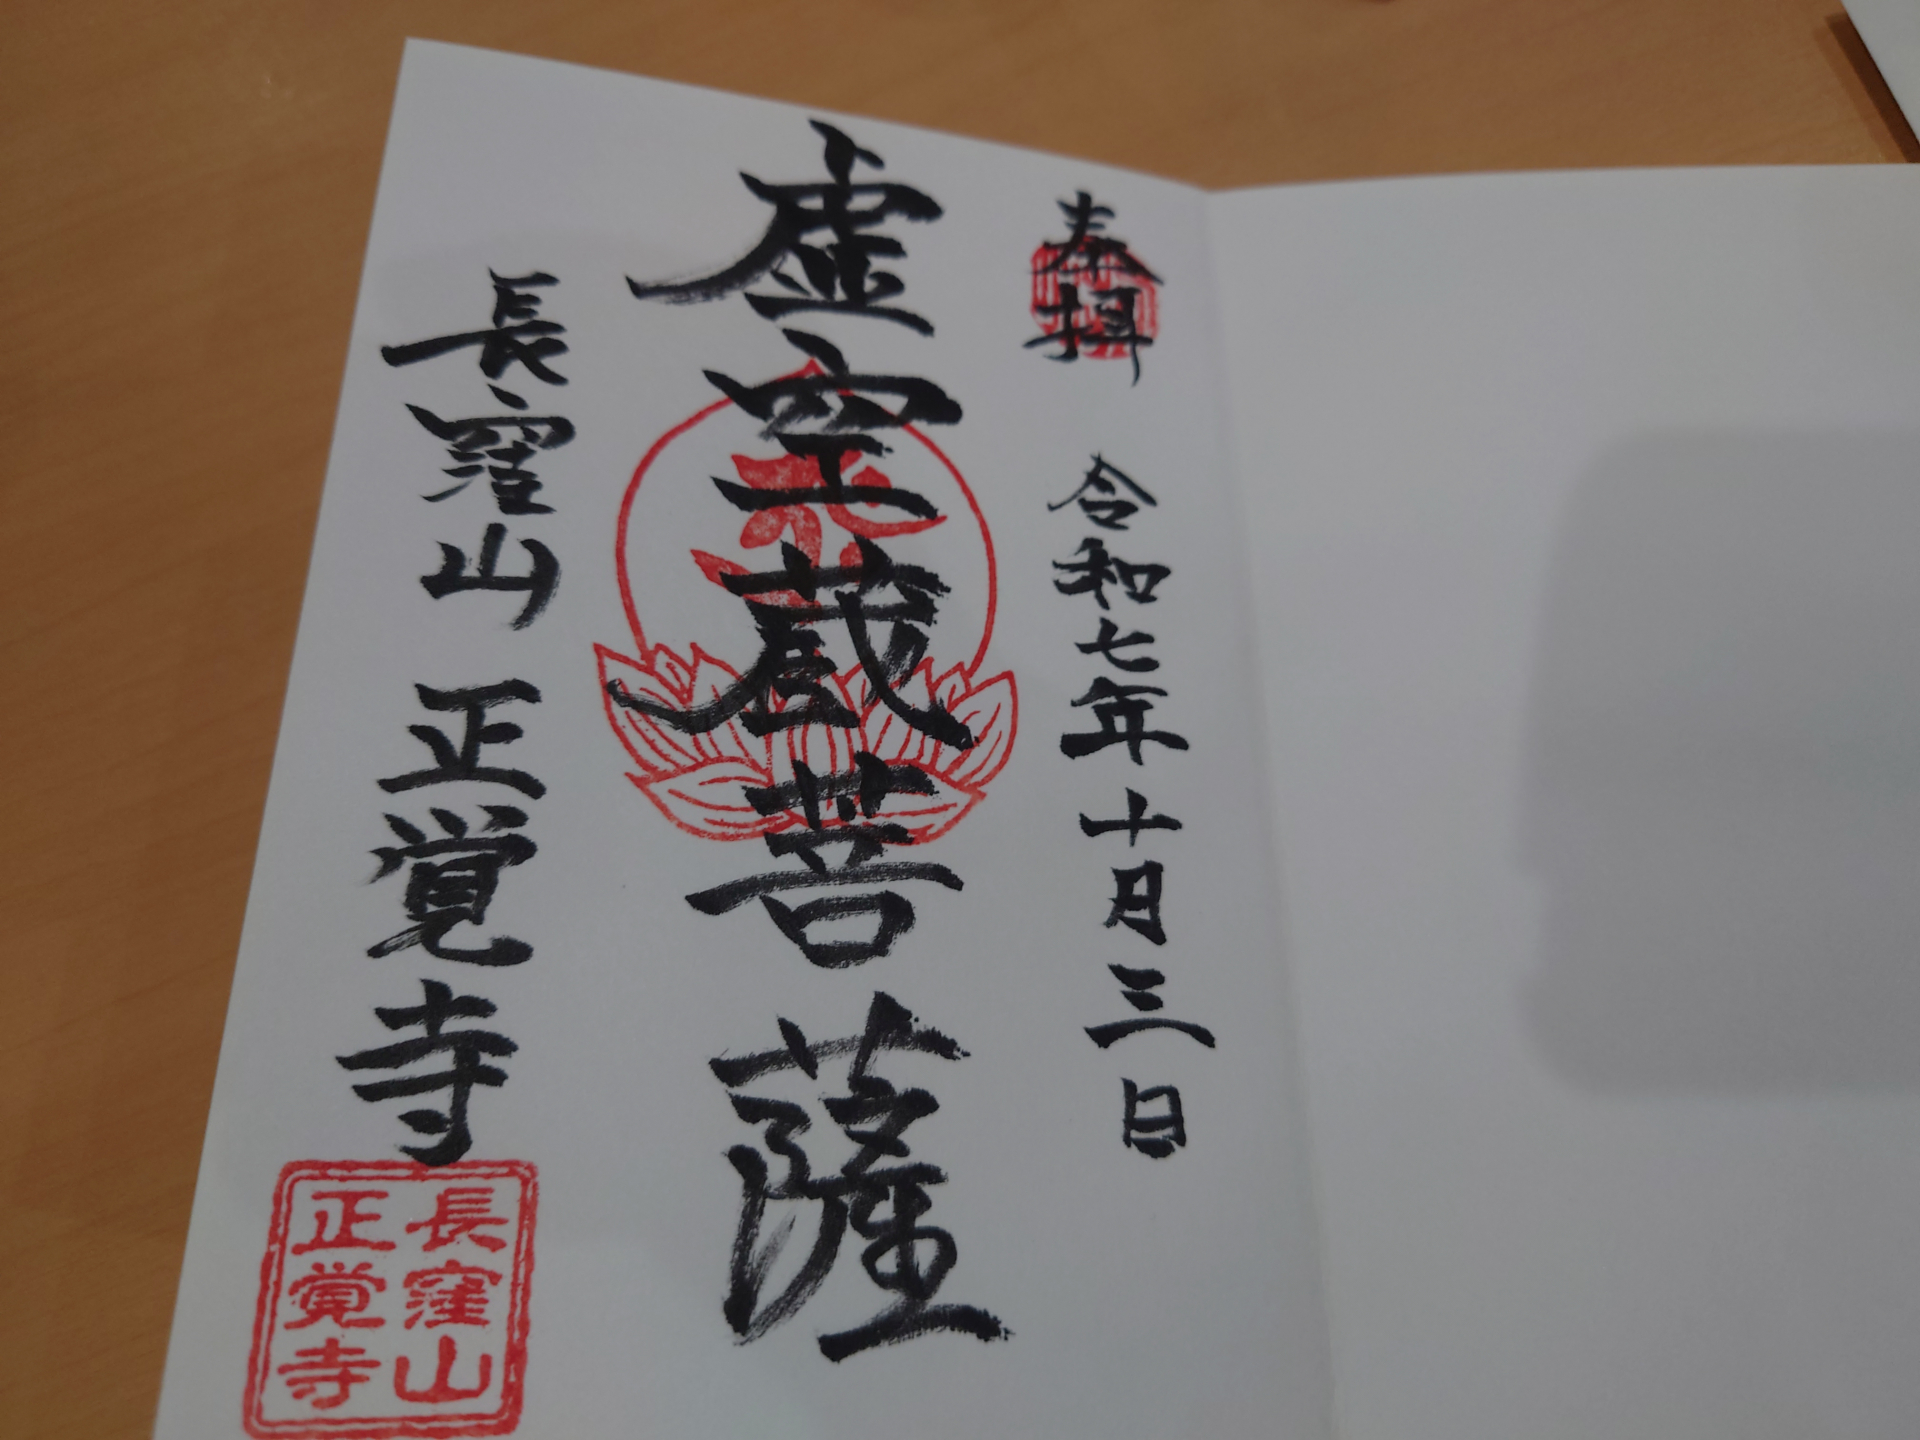 奉拝 令和七年十月三日
虚空蔵菩薩
長窪山 正覚寺
長窪山
正覚寺